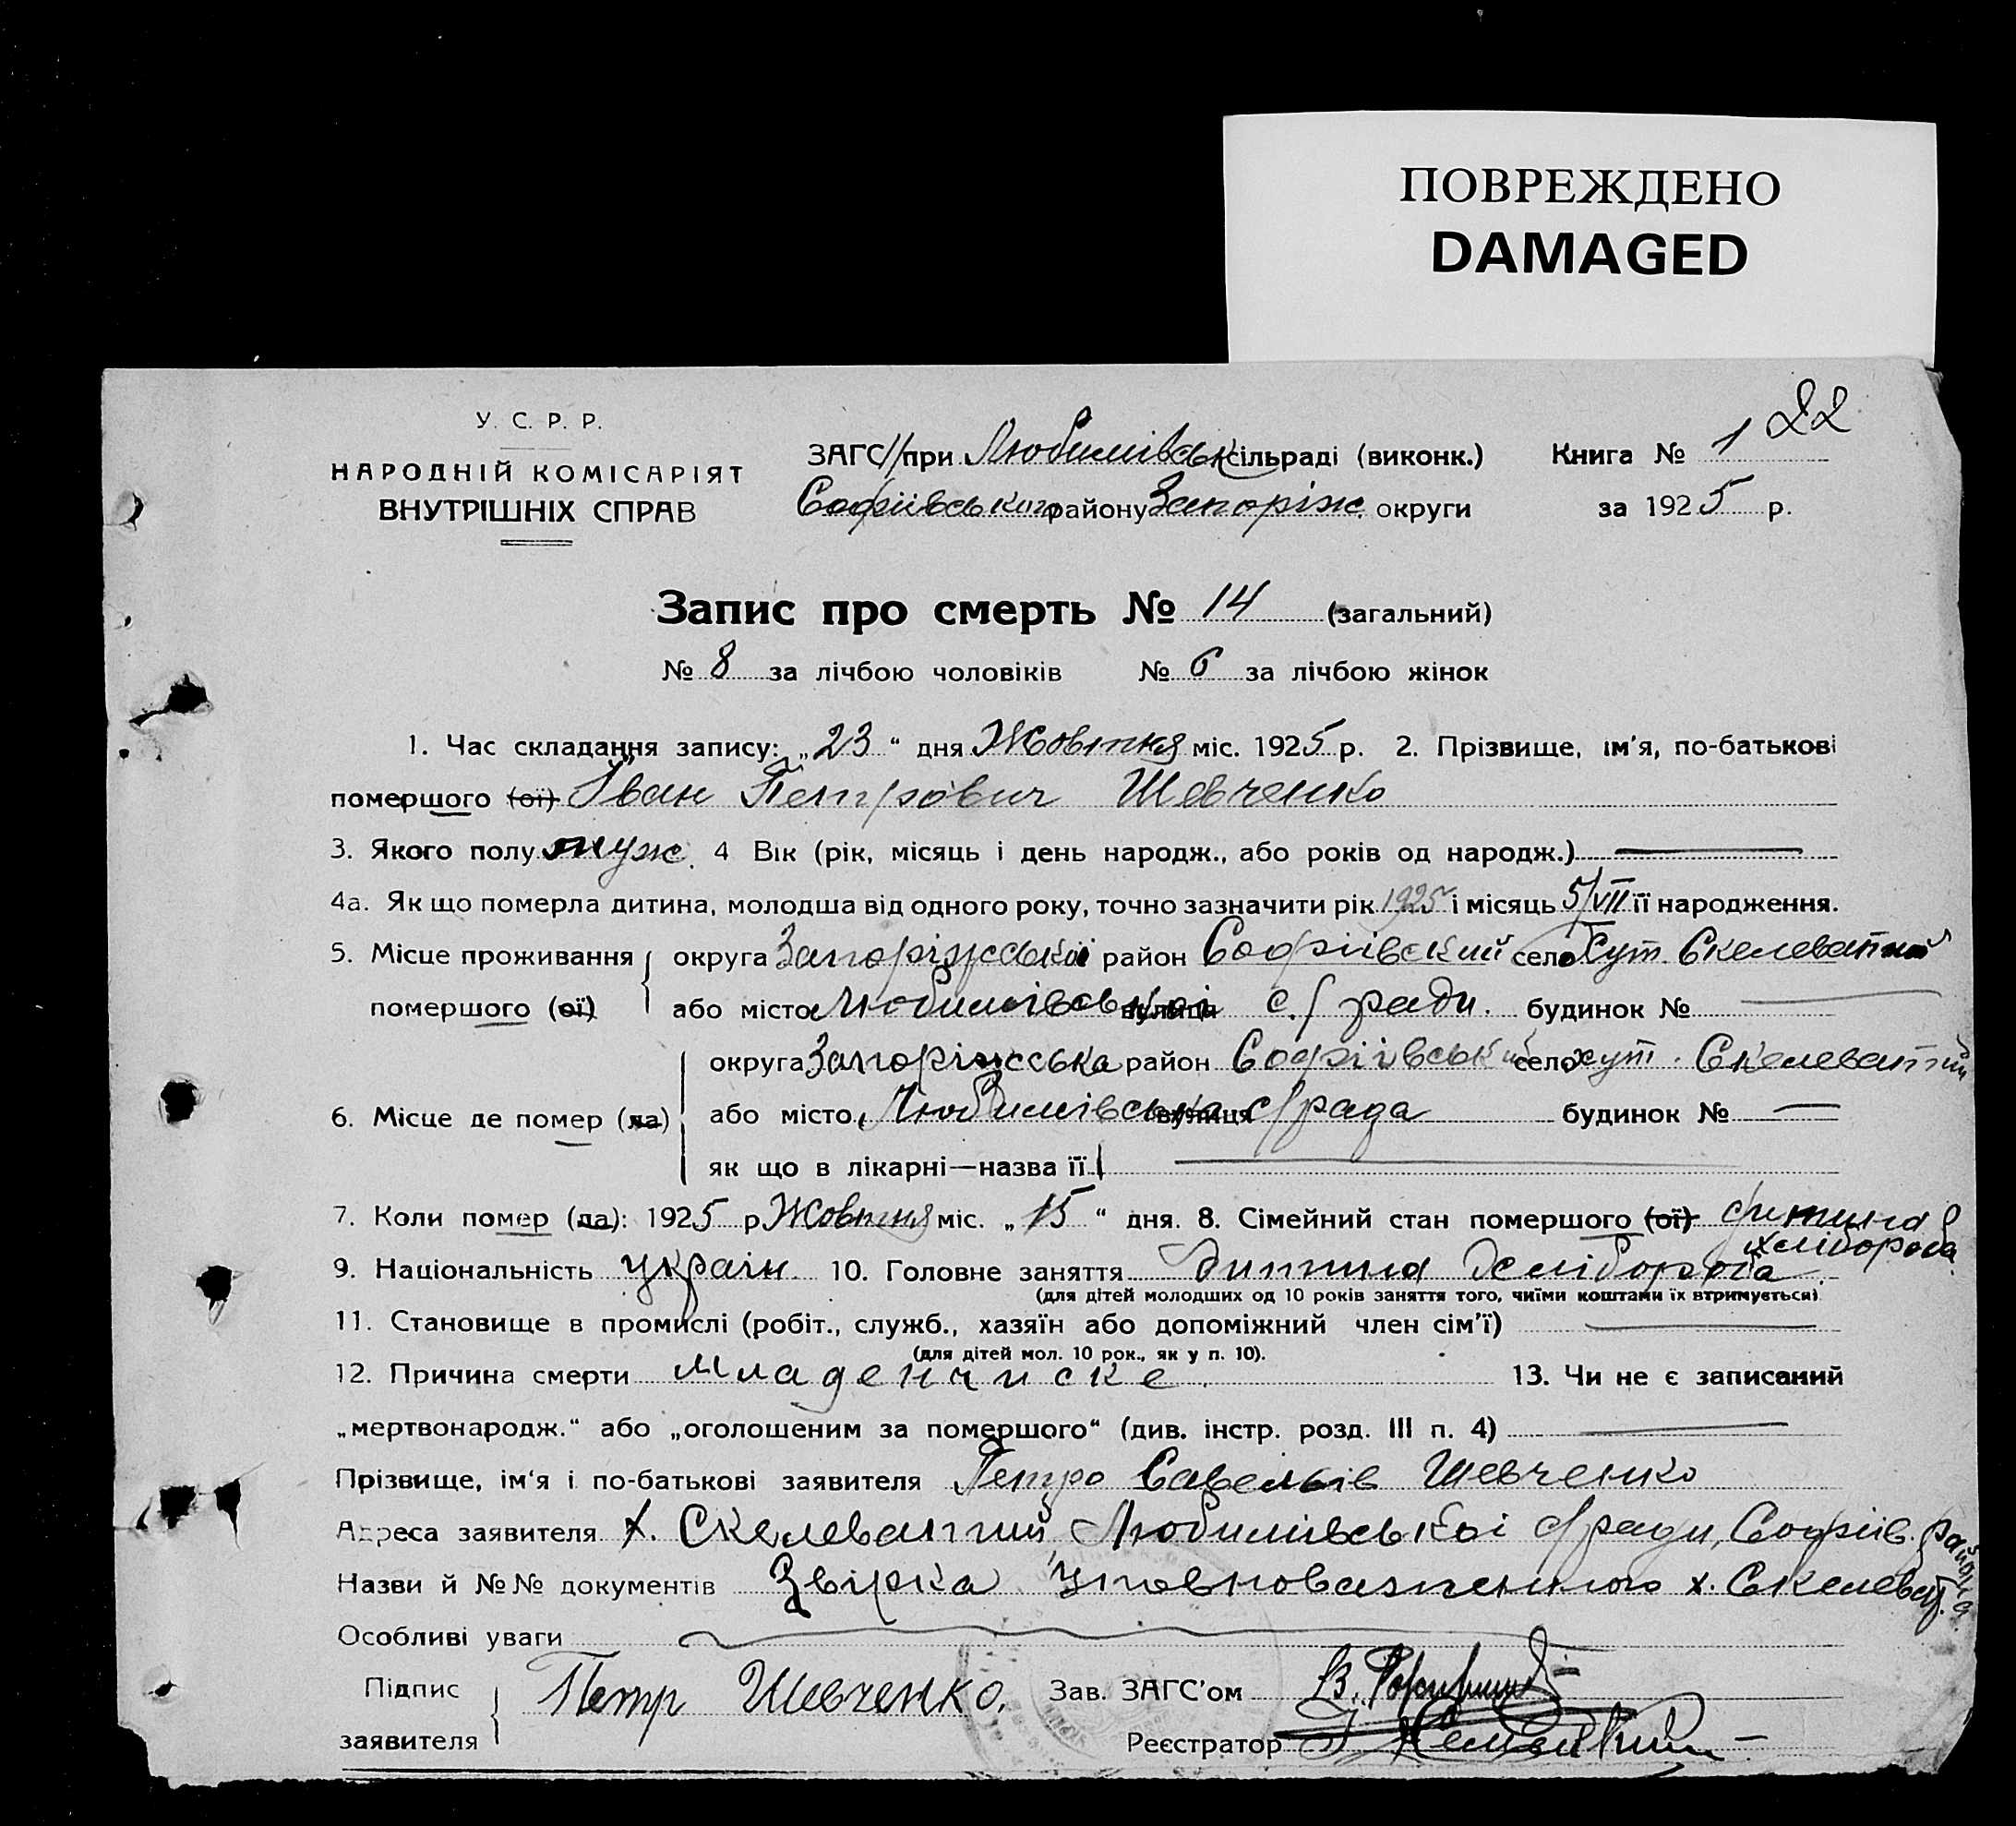 ПОВРЕЖДЕНО
DAMAGED
22
У. С. Р. Р.
НАРОДНІЙ КОМІСАРІЯТ
ВНУТРІШНІХ СПРАВ
ЗАГС // при Любимівськ сільраді (виконк.) Книга № 1
Софіївського району Запоріж. округи за 1925 р.
Запис про смерть № 14 (загальний)
№ 8 за лічбою чоловіків № 6 за лічбою жінок
1. Час складання запису: „23“ дня Жовтня міс. 1925 р. 2. Прізвище, ім'я, по-батькові
помершого (ої) Іван Петрович Шевченко
3. Якого полу муж. 4 Вік (рік, місяць і день народж., або років од народж.) —
4а. Як що померла дитина, молодша від одного року, точно зазначити рік 1925 і місяць 5/VII її народження.
5. Місце проживання округа Запоріжської район Софіївский село Хут. Скелеватий
помершого (ої) або місто Любимівської вулиця с/ради. будинок № —
округа Запоріжська район Софіївський село хут. Скелеватий
6. Місце де помер (ла) або місто Любимівська вулиця с/рада будинок № —
як що в лікарні—назва її —
7. Коли помер (ла): 1925 р Жовтня міс. „15“ дня. 8. Сімейний стан помершого (ої) дитина
хлібороба
9. Національність україн. 10. Головне заняття дитина хлібороба
(для дітей молодших од 10 років заняття того, чиїми коштами їх втримується)
11. Становище в промислі (робіт., служб., хазяїн або допоміжний член сім'ї) —
(для дітей мол. 10 рок., як у п. 10).
12. Причина смерти Младенчиске. 13. Чи не є записаний
„мертвонародж.“ або „оголошеним за помершого“ (див. інстр. розд. III п. 4) —
Прізвище, ім'я і по-батькові заявителя Петро Савельів Шевченко
Адреса заявителя х. Скелеватий, Любимівської с/ради, Софіїв. района
Назви й №№ документів Звірка Уповноваженного х. Скелеват.
Особливі уваги
Підпис заявителя Петр Шевченко. Зав. ЗАГС'ом В.
Реєстратор